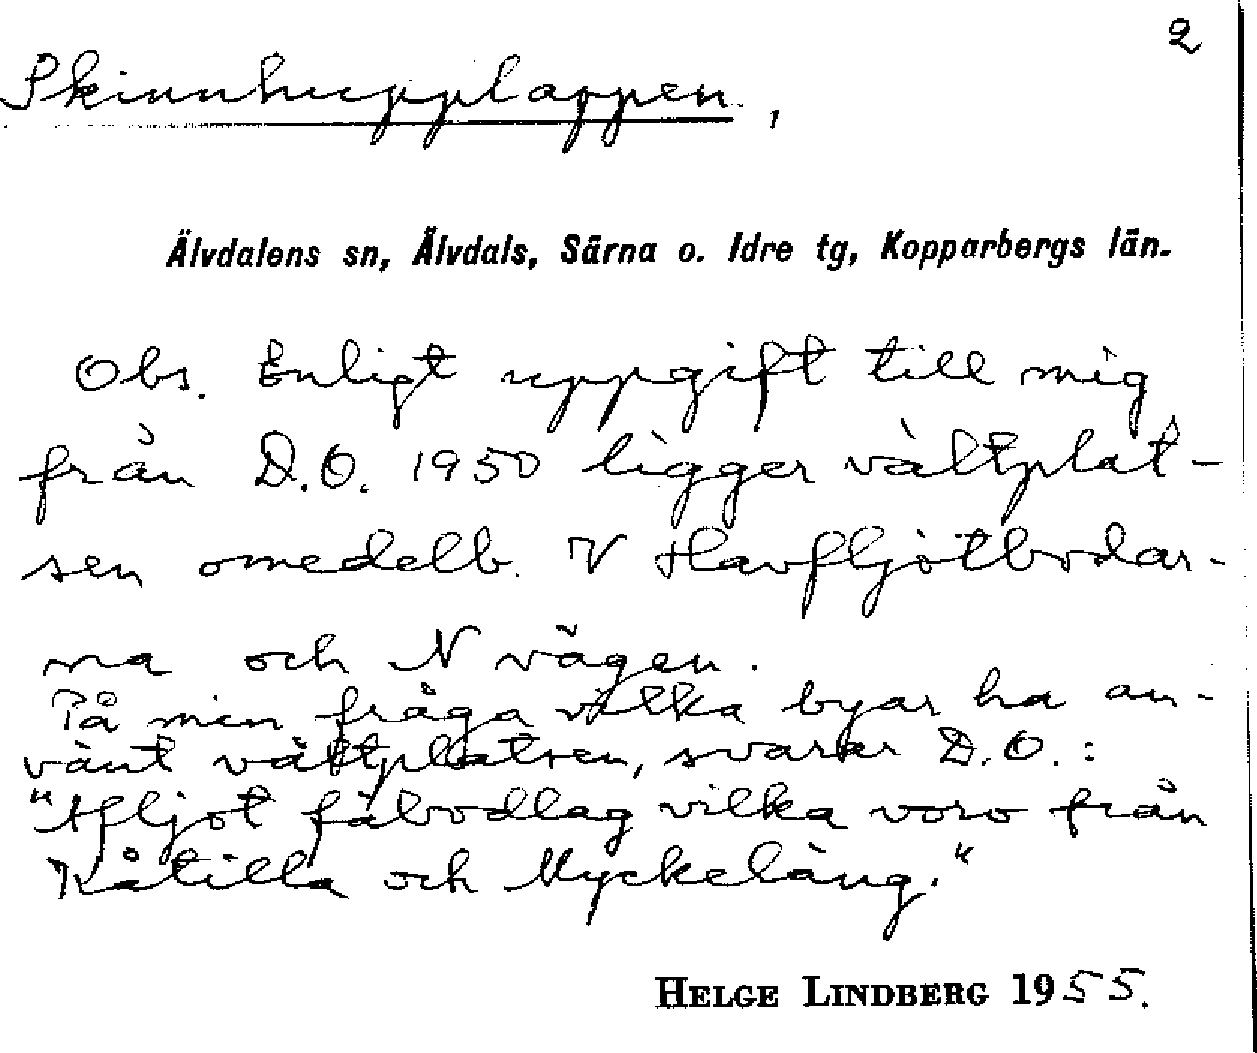 2
Skinnhupplappen,
Älvdalens sn, Älvdals, Särna o. Idre tg, Kopparbergs län.
Obs. Enligt uppgift till mig
från D.O. 1950 ligger vältplat-
sen omedelb. V Havfljötbodar-
na och N vägen.
På min fråga vilka byar ha an-
vänt vältplatsen, svarar D.O.:
"Afljot fäbodlag vilka voro från
Kåtilla och Myckeläng."
HELGE LINDBERG 1955.